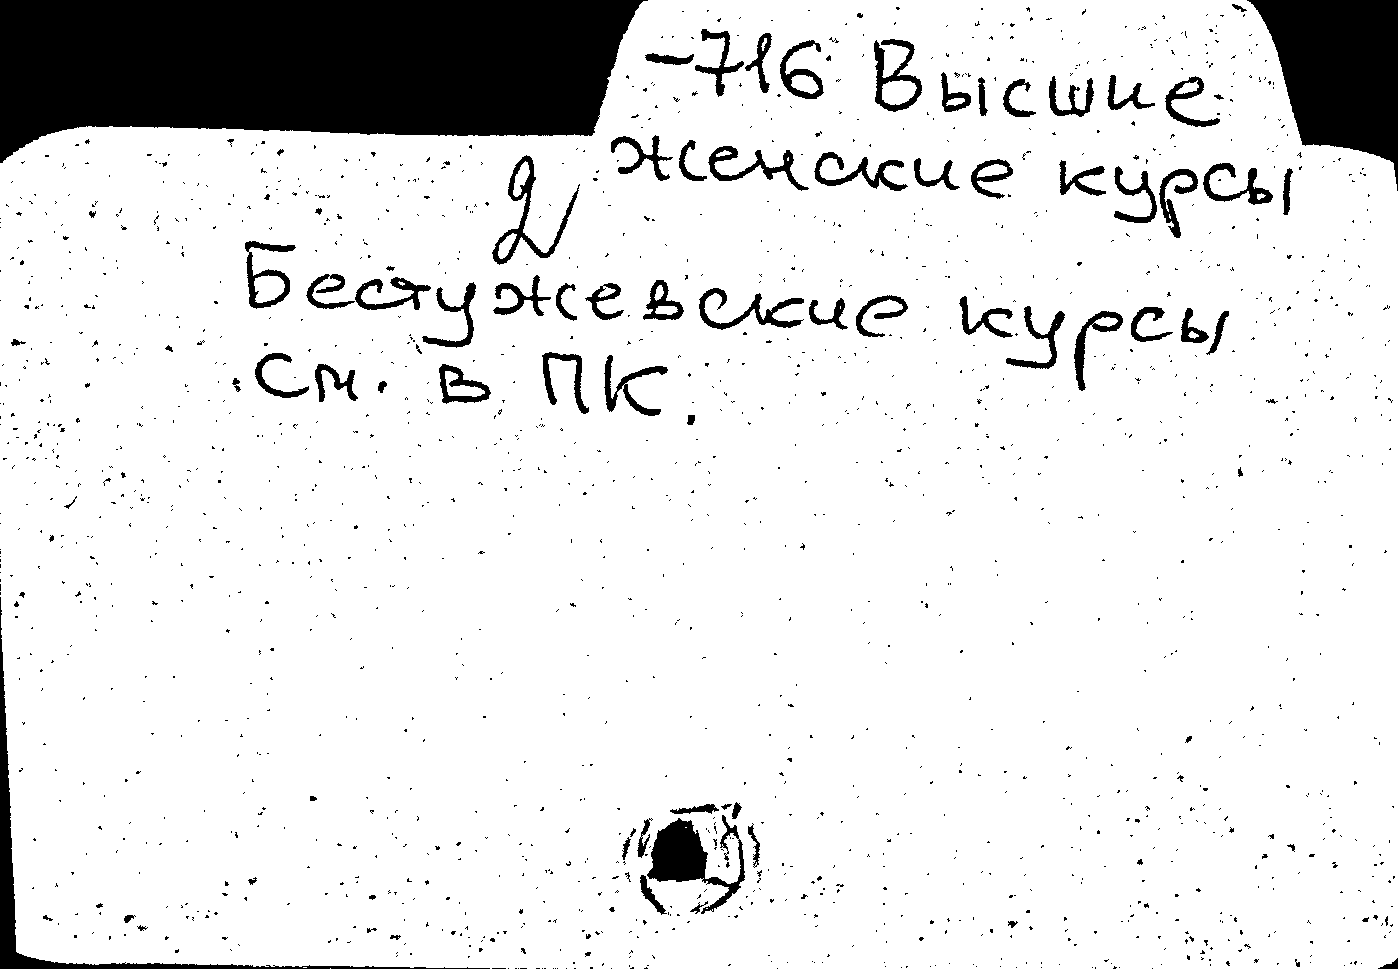 -716 Высшие
женские курсы
2
Бестужевские курсы
См. в ПК.